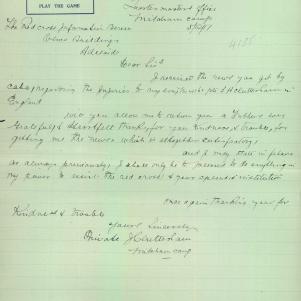 PLAY THE GAME
Quartermasters Office
Mitcham Camp
The Red cross Information Bureau
Adelaide
4125
Dear Sir
I received the news you got by
cable, regarding the Injuries to my
England
will you allow me to return you a Fathers
Grateful & Heartfelt thanks, for your Kindness & trouble, for
getting me the news which is altogether satisfactory
and I may state in future
as always previously, I shall only be to pleased to do anything in
my power to assist the red cross & your splendid institution
once again thanking you for
Kindness & trouble
Yours Sincerely
Private
Mitcham Camp